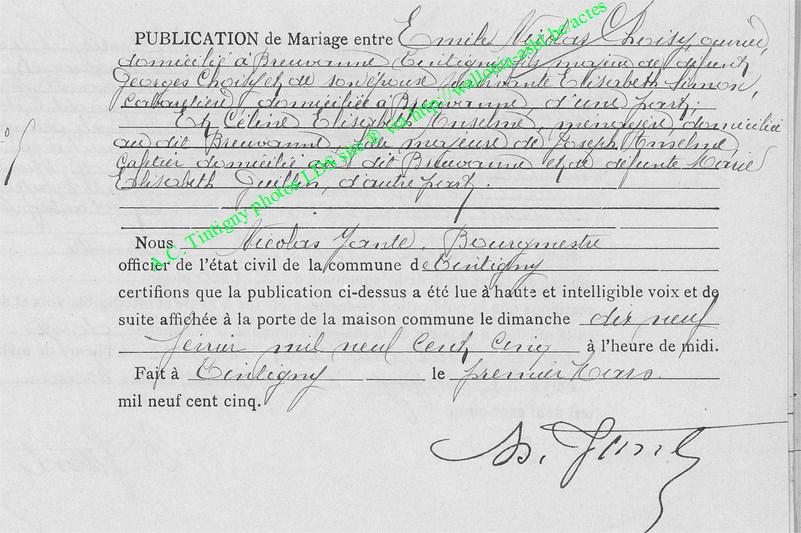 PUBLICATION de Mariage entre Emile Nicolas Choisy, ouvrier,
domicilié à Breuvanne Tintigny fils majeur de défunt
Georges Choisy et de son épouse survivante Elisabeth Simon,
domiciliée à Breuvanne, d'une part;
Et Céline Elisabeth Anselme, ménagère, domiciliée
au dit Breuvanne, fille majeure de Joseph Anselme
domicilié au dit Breuvanne et de défunte Marie
Elisabeth Guillin, d'autre part.
Nous Nicolas Jante, Bourgmestre
officier de l'état civil de la commune de Tintigny
certifions que la publication ci-dessus a été lue à haute et intelligible voix et de
suite affichée à la porte de la maison commune le dimanche dix neuf
février mil neuf cent cinq à l'heure de midi.
Fait à Tintigny le premier Mars
mil neuf cent cinq.
N. Jante
A.C. Tintigny photos LDS sur © via http://wallonia-asbl.be/actes